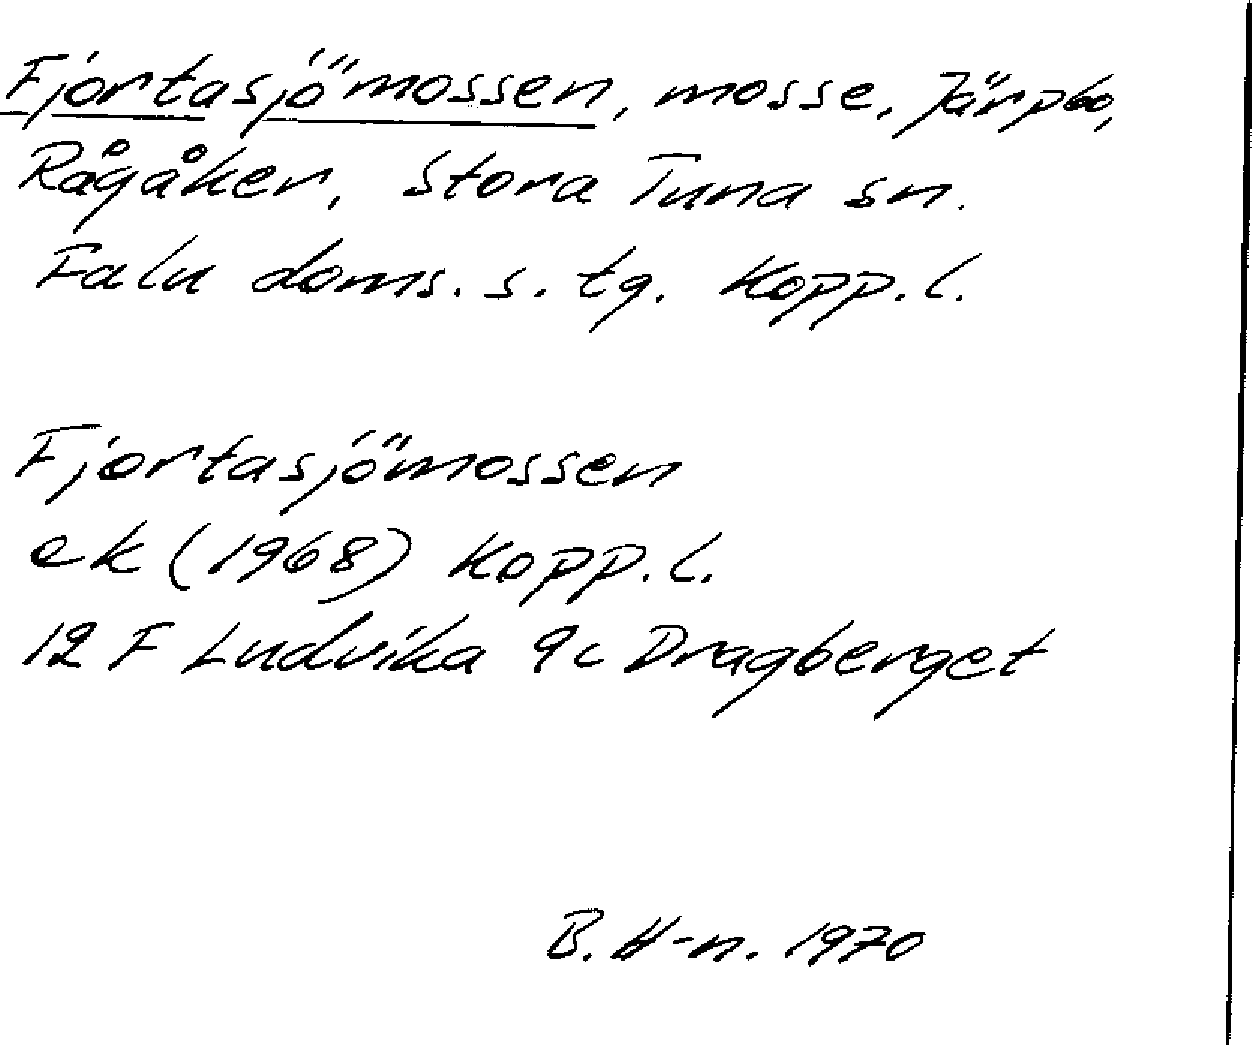 Fjortasjömossen, mosse, Järpbo,
Rågåker, Stora Tuna sn.
Falu doms. s. tg. Kopp. l.
Fjortasjömossen
ek (1968) Kopp. l.
12 F Ludvika 9c Dragberget
B. H-n. 1970